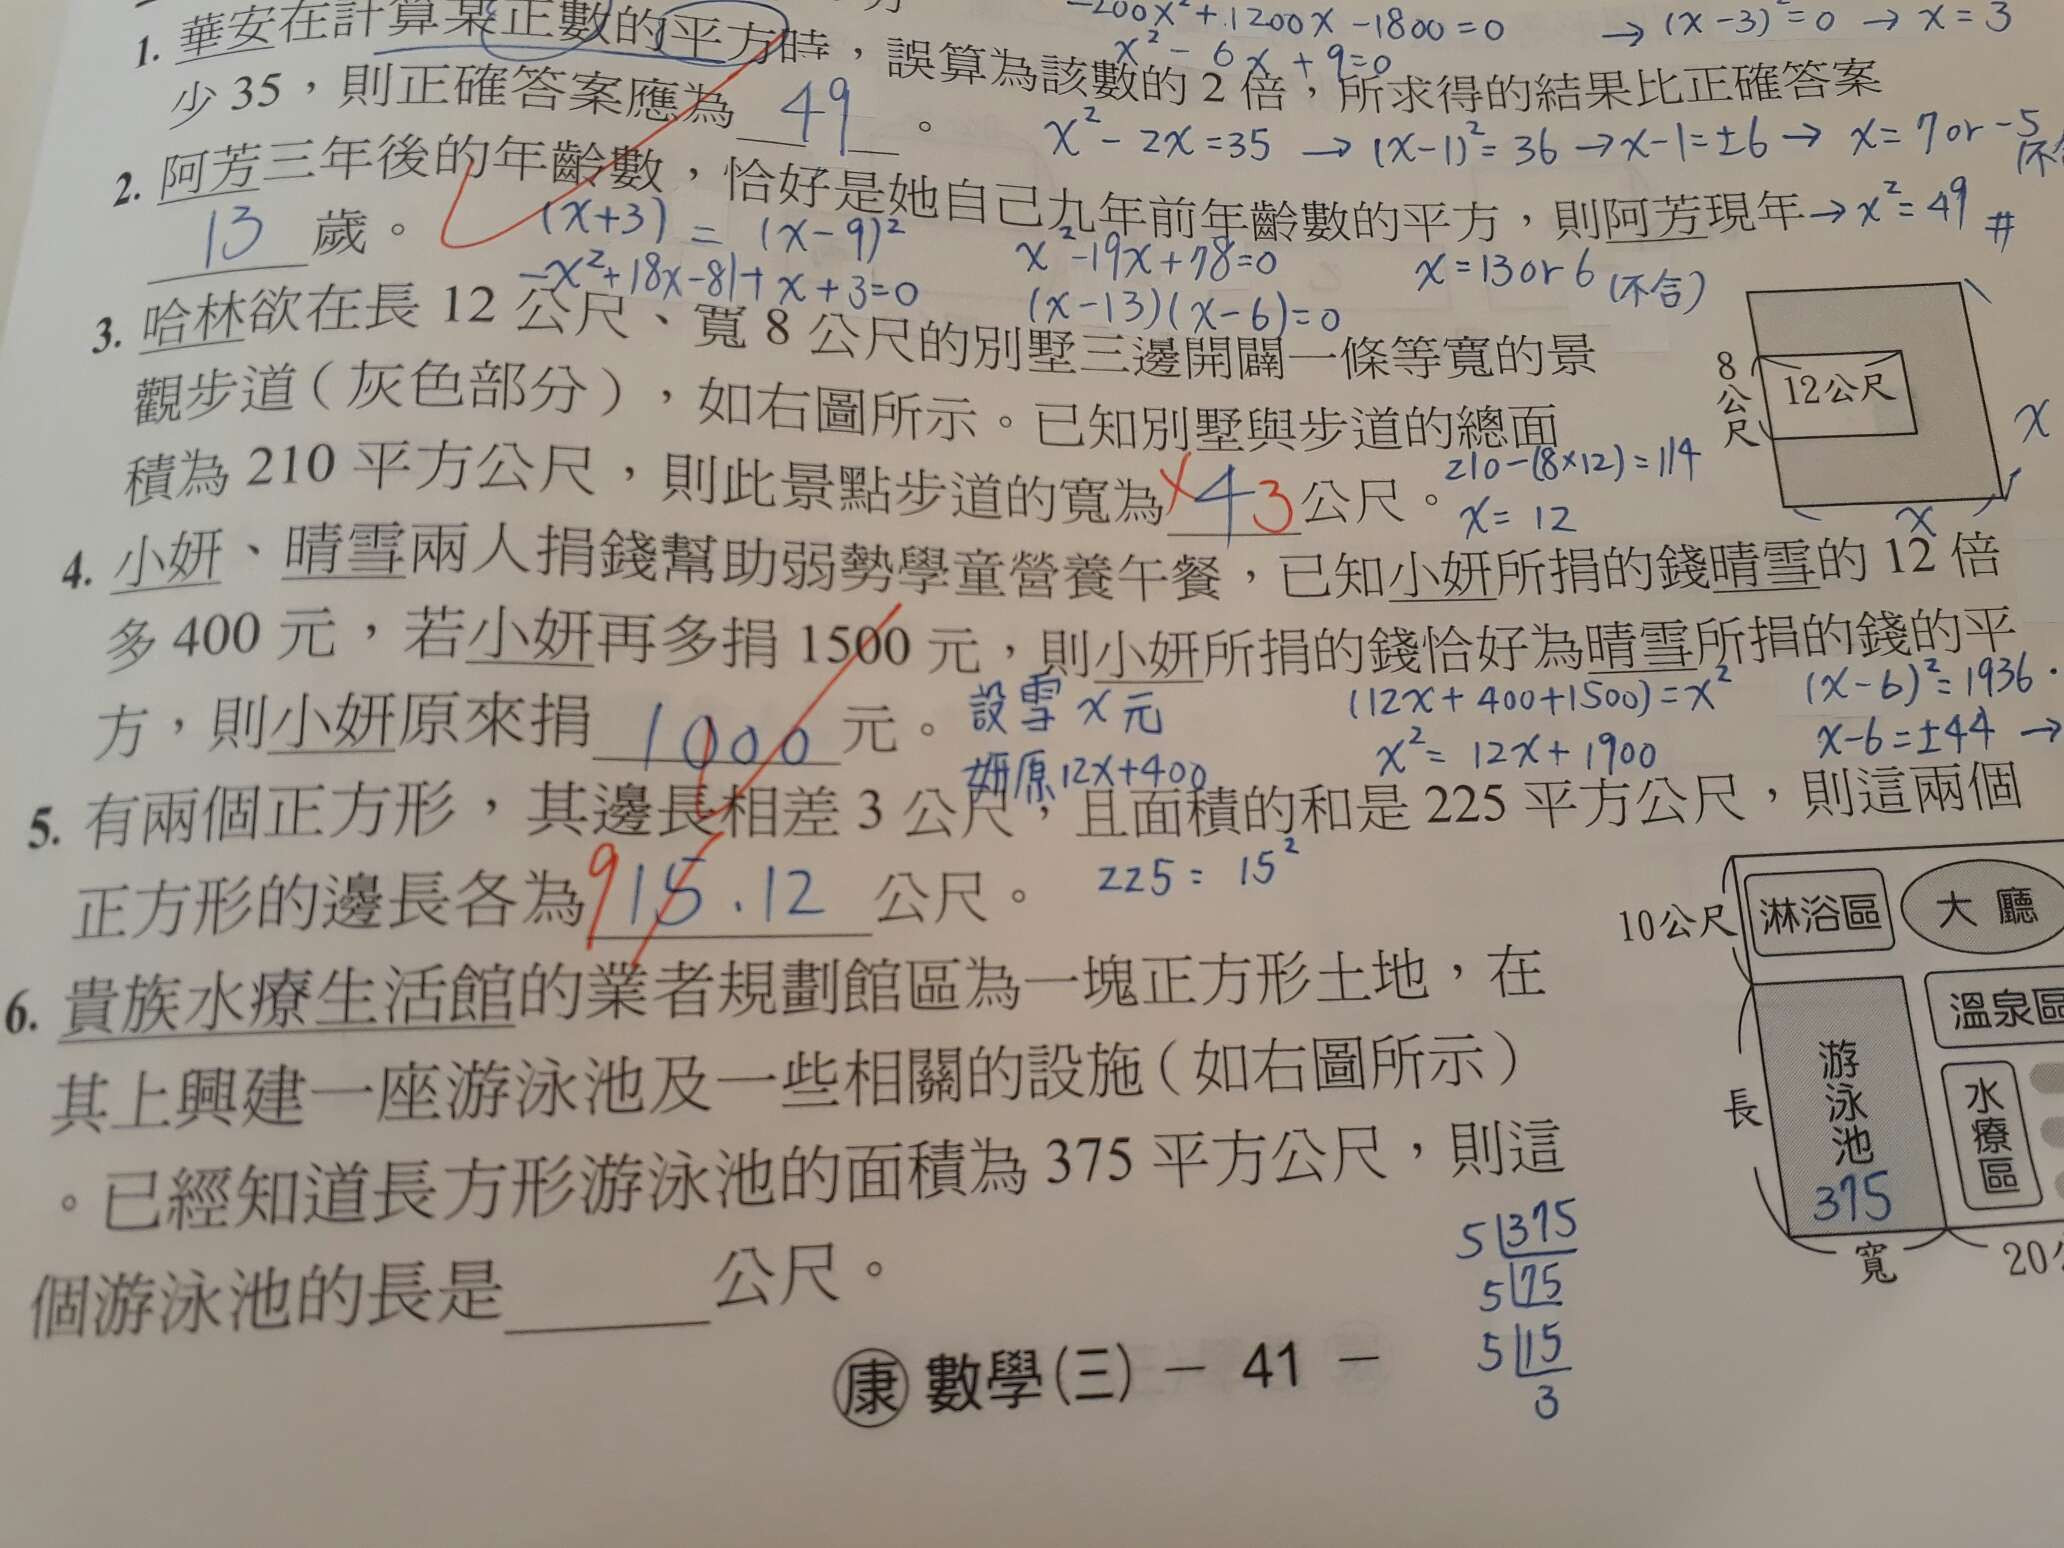 -200x²+1200x-1800=0 → (x-3)²=0 → x=3
x²-6x+9=0
1. 華安在計算某正數的平方時，誤算為該數的 2 倍，所求得的結果比正確答案
少 35，則正確答案應為 49 。
x²-2x=35 → (x-1)²=36 → x-1=±6 → x=7 or -5
2. 阿芳三年後的年齡數，恰好是她自己九年前年齡數的平方，則阿芳現年 → x²=49 #
13 歲。
(x+3) = (x-9)²
-x²+18x-81+x+3=0
x²-19x+78=0
(x-13)(x-6)=0
x=13 or 6 (不合)
3. 哈林欲在長 12 公尺、寬 8 公尺的別墅三邊開闢一條等寬的景
觀步道（灰色部分），如右圖所示。已知別墅與步道的總面
積為 210 平方公尺，則此景點步道的寬為 4 3 公尺。
210-(8×12)=114
x=12
8公尺
12公尺
x
x
4. 小妍、晴雪兩人捐錢幫助弱勢學童營養午餐，已知小妍所捐的錢晴雪的 12 倍
多 400 元，若小妍再多捐 1500 元，則小妍所捐的錢恰好為晴雪所捐的錢的平
方，則小妍原來捐 1000 元。
設雪 x 元
妍原 12x+400
(12x+400+1500)=x²
x²=12x+1900
(x-6)²=1936
x-6=±44 →
5. 有兩個正方形，其邊長相差 3 公尺，且面積的和是 225 平方公尺，則這兩個
正方形的邊長各為 9 15.12 公尺。
225=15²
6. 貴族水療生活館的業者規劃館區為一塊正方形土地，在
其上興建一座游泳池及一些相關的設施（如右圖所示）
。已經知道長方形游泳池的面積為 375 平方公尺，則這
個游泳池的長是 公尺。
10公尺
淋浴區
大廳
溫泉區
長
游泳池
375
水療區
寬
20
5 375
5 75
5 15
3
康 數學(三) － 41 －